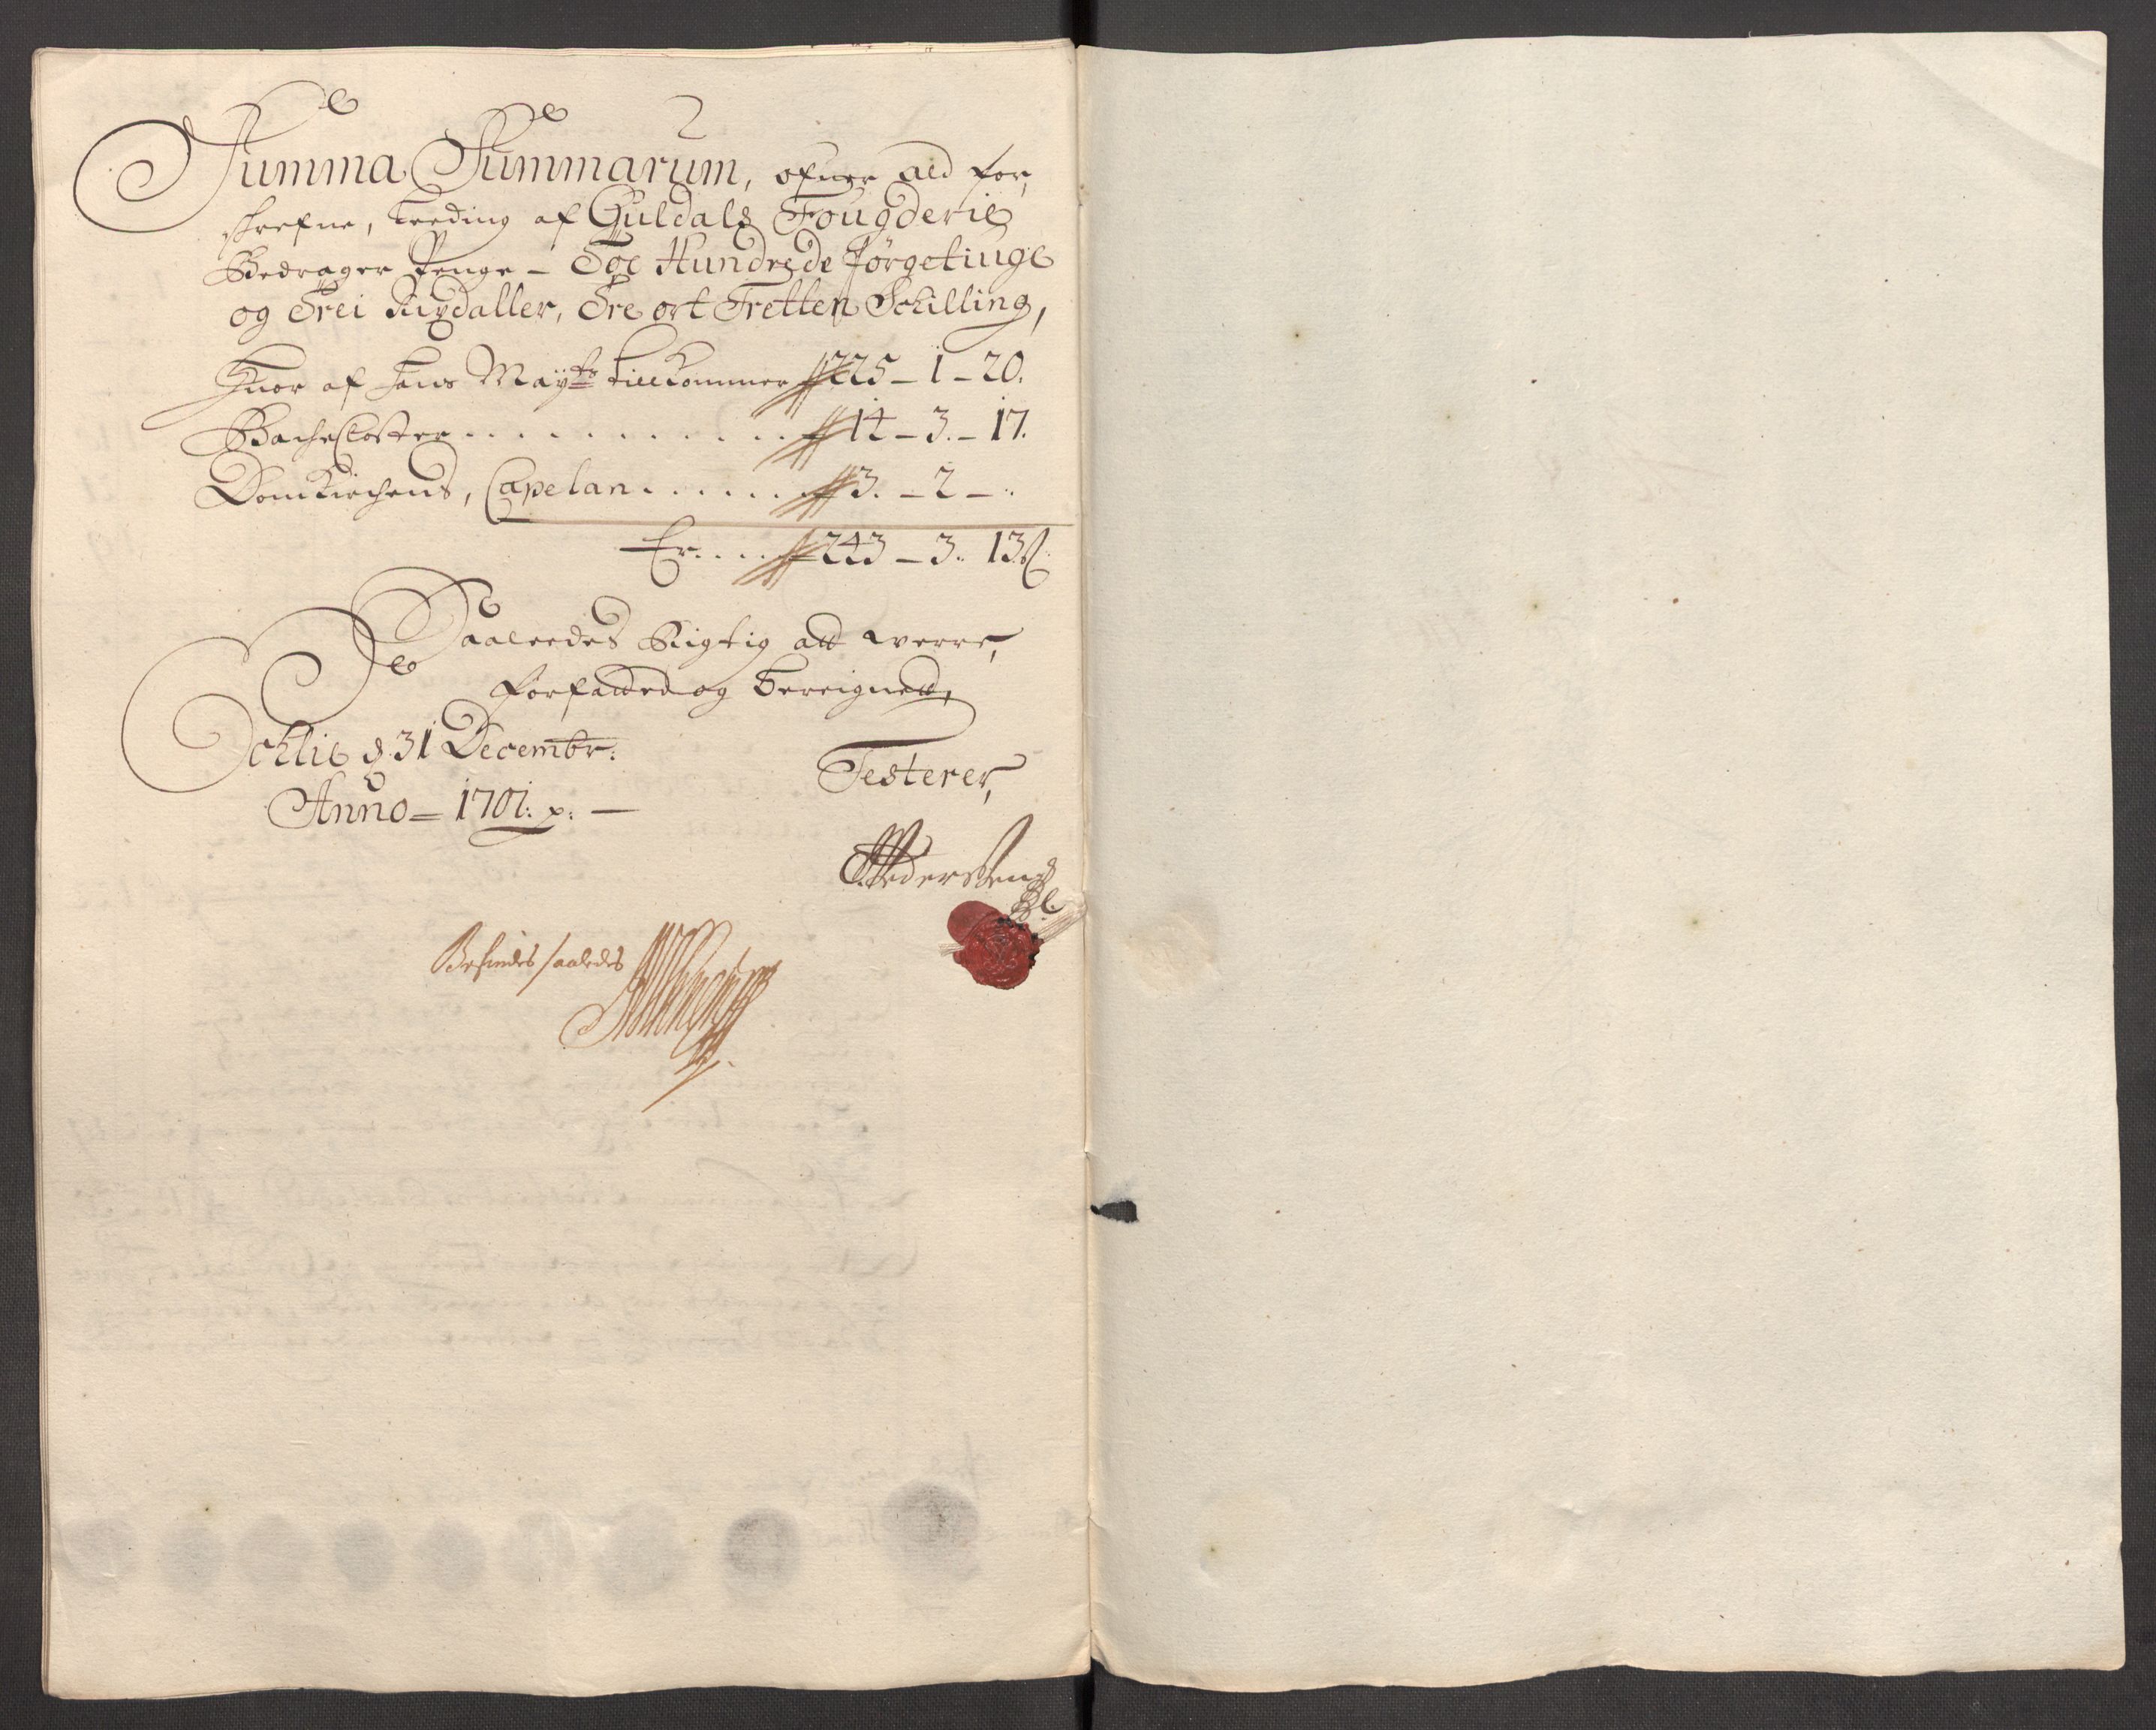 Summa Summarum, ofuer ald for,
skrefne, Leeding af Guldals Fougderie
Bedrager Penge – Toe Hundrede förgetiuge
og Trei Rixdaller, Tre ort Tretten Schilling,
Huor af Hans Mayts tillkommer 225 – 1 – 20.
Bache Closter . . . . . . . . . . . 14 – 3. – 17.
Domkirchens, Capelan . . . . . . 3. – 2 – :
Er . . . . 243 – 3. 13 ß
Saaleedes Rigtig att werre,
forfatted og bereignett,
d. 31 Decembr:
Anno = 1701: p: —
Testerer,
Befindes saaledes